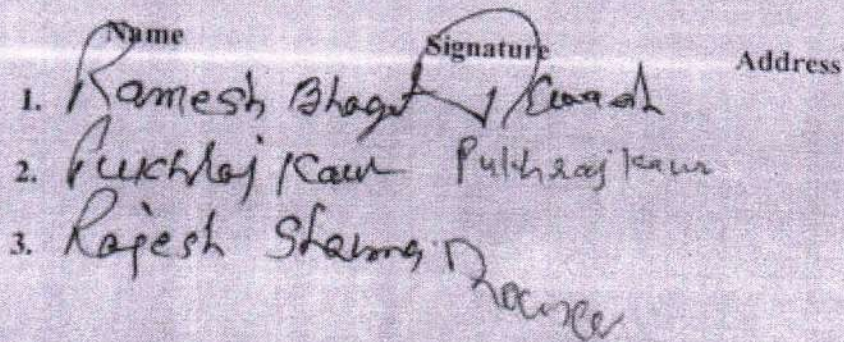 Name Signature Address
1. Ramesh Bhagat
2. Pukhraj Kaur Pukhraj kaur
3. Rajesh Sharma